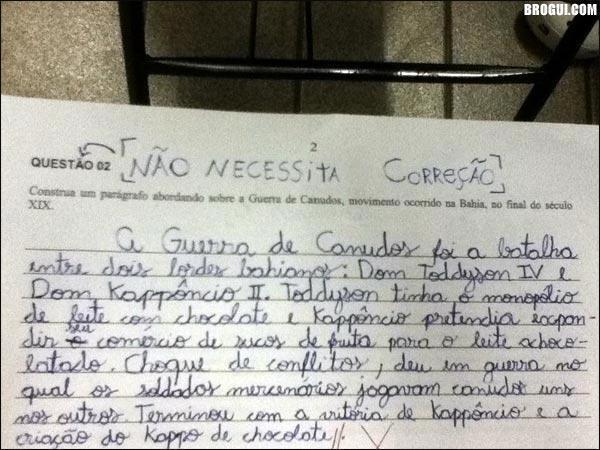 BROGUI.COM
2
QUESTÃO 02 [NÃO NECESSITA CORREÇÃO]
Construa um parágrafo abordando sobre a Guerra de Canudos, movimento ocorrido na Bahia, no final do século
XIX.
A Guerra de Canudos foi a batalha
entre dois lordes bahianos: Dom Toddyson IV e
Dom Kappôncio II. Toddyson tinha o monopólio
de leite com chocolate e Kappôncio pretendia expan-
dir seu comércio de sucos de fruta para o leite achoco-
latado. Choque de conflitos, deu em guerra no
qual os soldados mercenários jogavam canudos uns
nos outros. Terminou com a vitória de Kappôncio e a
criação do Kappo de chocolate.